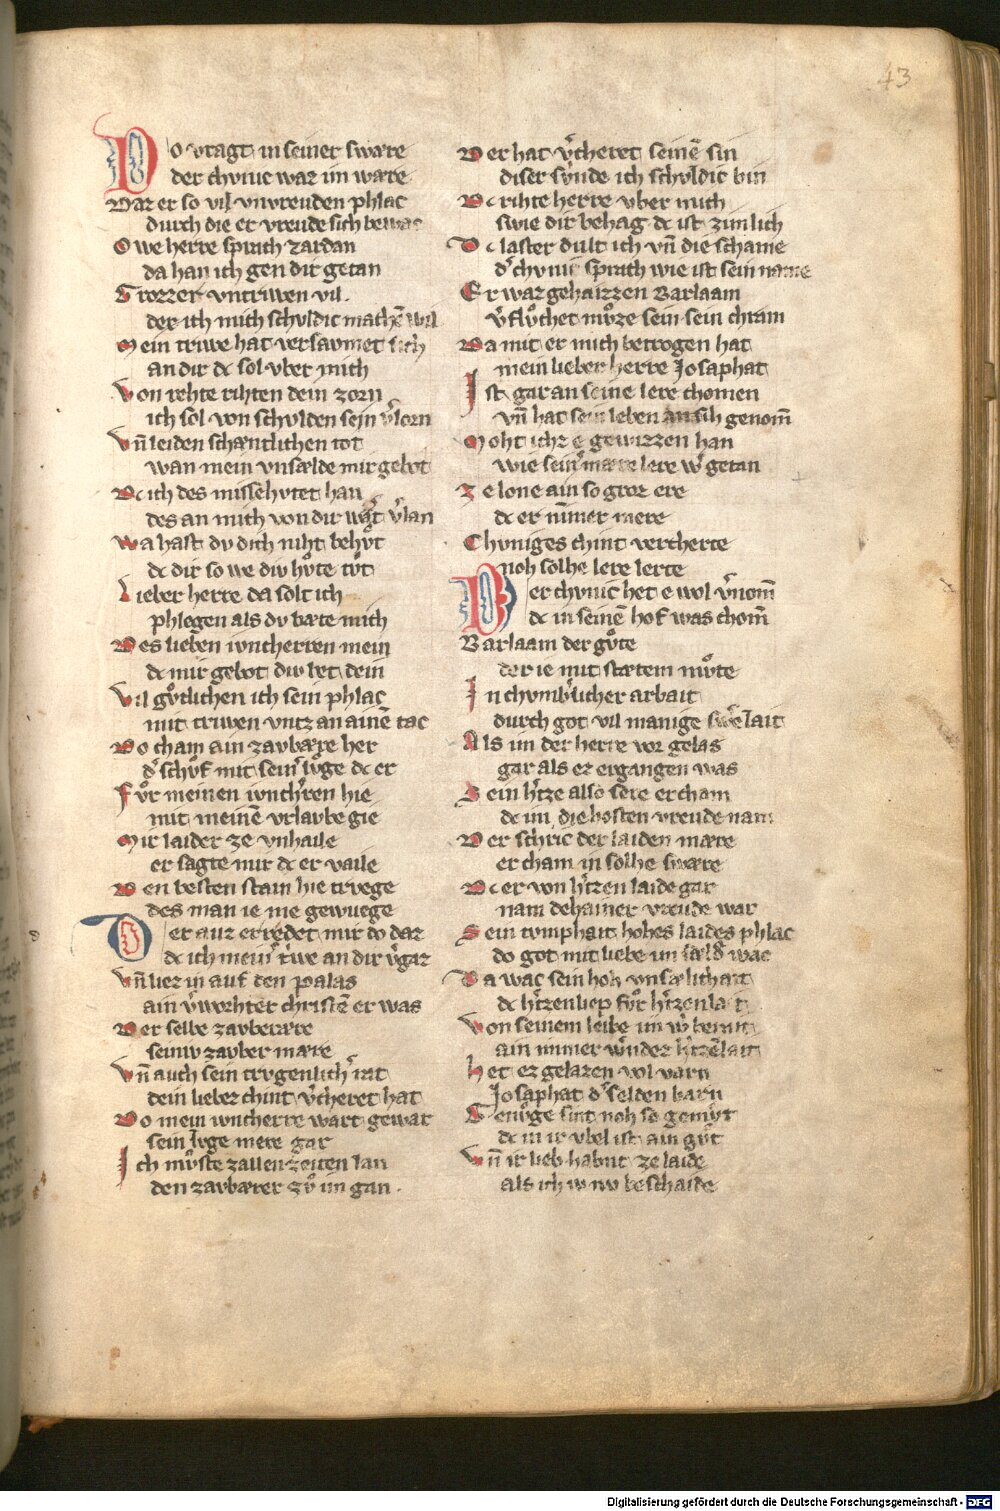 43
Do vragt in seiner swære
der chvnic waz im wære
Daz er so vil vnvreuden phlac
durch die er vreude sich bewac
Owe herre sprach zardan
da han ich gen dir getan
Grozzer vntriwen vil.
der ich mich schvldic machē wil
Mein triwe hat versavmet sich
an dir dc sol vber mich
Von rehte rihten dein zorn
ich sol von schvlden sein v̓lorn
Vn̄ leiden schæntlichen tot
wan mein vnsælde mir gebot
Dc ich des missehvtet han
des an mich von dir wart v̓lan
Wa hast dv dich niht behvͦt
dc dir so we div hvͦte tvͦt
Lieber herre da solt ich
phlegen als dv bæte mich
Des lieben ivncherren mein
dc mir gebot div bet dein
Vil gvͦtlichen ich sein phlac
mit triwen vntz an ainē tac
Do cham ain zavbære her
d̓ schvͦf mit sein̓ lvͦge dc er
Fvͦr meinen ivnch̓ren hie
mit meinē vrlavbe gie
Mir laider ze vnhaile
er sagte mir dc er vaile
Den besten stain hie trvege
des man ie me gewuege
Der avz er redet mir do daz
dc ich mein̓ triwe an dir v̓gaz
Vn̄ liez in auf den palas
ain v̓worhter christē er was
Der selbe zavberære
seiniv zavber mære
Vn̄ auch sein trvgenlich̓ rat
dein liebez chint v̓cheret hat
Do mein ivncherre wart gewar
sein lvge mere gar
Ich mvͦste zallen zeiten lan
den zavbærer zvͦ im gan.
Der hat v̓cheret seinē sin
diser svnde ich schvldic bin
Dc rihte herre vber mich
swie dir behag dc ist zimlich
Dc laster dult ich vn̄ die schame
d̓ chvnic sprach wie ist sein name
Er waz gehaizzen Barlaam
v̓flvͦchet mvͦze sein sein chram
Da mit er mich betrogen hat
mein lieber herre Josaphat
Ist gar an seine lere chomen
vn̄ hat sein leben an sih genom̄
Moht ichz e gewizzen han
wie sein̓ mære lere w̓ getan
Ze lone ain so groz ere
dc er nim̄er mere
Chvniges chint vercherte
noh solhe lere lerte
Der chvnic het e wol v̓nom̄
dc in seinē hof was chom̄
Barlaam der gvͦte
der ie mit stætem mvͦte
In chvmb̓licher arbait
durch got vil manige sw̓e lait
Als im der herre vor gelas
gar als ez ergangen was
Sein h̓tze also sere ercham
dc im die hosten vreude nam
Der schric der laiden mære
er cham in solhe swære
Dc er von h̓tzen laide gar
nam dehainer vreude war
Sein trvmphait hohes laides phlac
do got mit liebe im sæld̓ wac
Da wac sein hoh vnsælichait
dc h̓tzenliep fvͦr h̓tzenlait
Von seinem leibe im w̓ benvm̄
ain immer w̓nder h̓tzēlait
Het ez gelazen vol varn
Josaphat d̓ selden barn
Genvͦge sint noh so gemvͦt
dc in ir vbel ist ain gvͦt
Vn̄ ir lieb habnt ze laide
als ich w nw beschaide
Digitalisierung gefördert durch die Deutsche Forschungsgemeinschaft - DFG